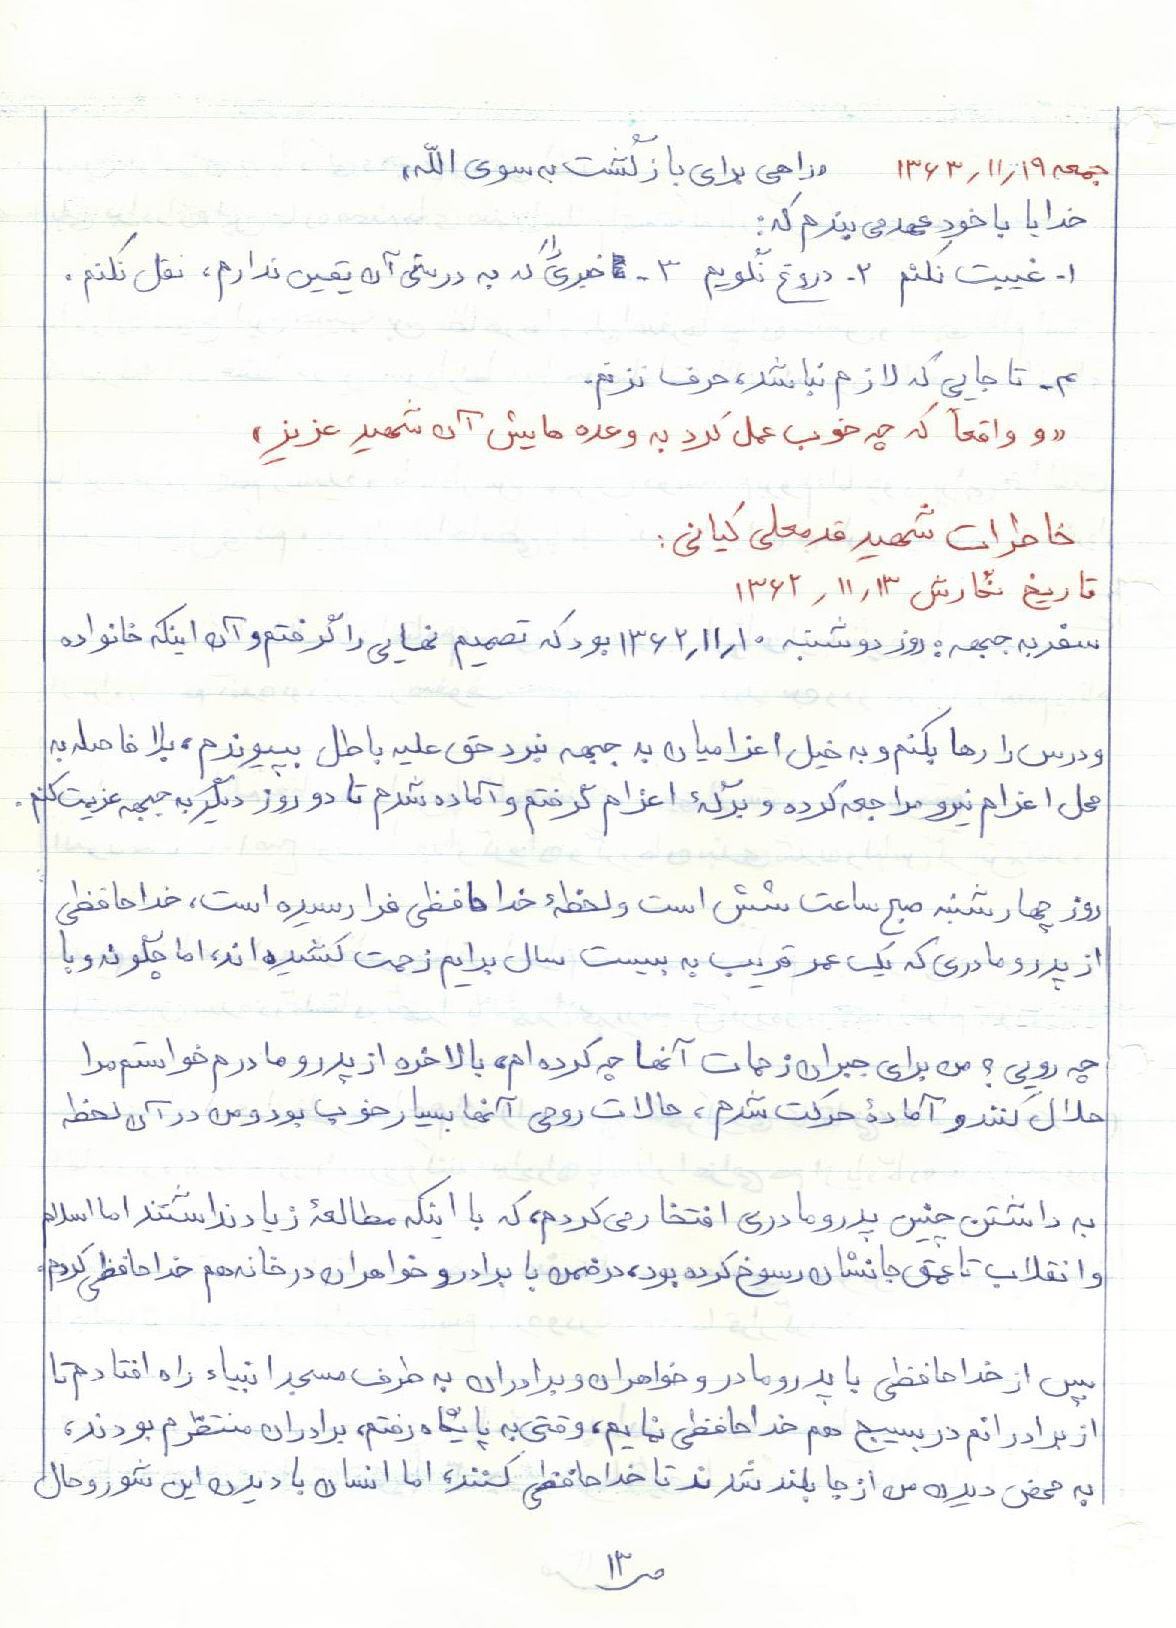 جمعه ۱۹ر۱۱ر۱۳۶۳ «راهی برای بازگشت به سوی اللّه»
خدایا با خود عهد می بندم که:
۱- غیبت نکنم ۲- دروغ نگویم ۳- خبری را که به درستی آن یقین ندارم، نقل نکنم.
۴- تا جایی که لازم نباشد، حرف نزنم.
«و واقعاً که چه خوب عمل کرد به وعده هایش آن شهید عزیز»
خاطرات شهید قدمعلی کیانی:
تاریخ نگارش ۱۳ر۱۱ر۱۳۶۲
سفر به جبهه: روز دوشنبه ۱۰ر۱۱ر۱۳۶۲ بود که تصمیم نهایی را گرفتم و آن اینکه خانواده
و درس را رها بکنم و به خیل اعزامیان به جبهه نبرد حق علیه باطل بپیوندم، بلا فاصله به
محل اعزام نیرو مراجعه کرده و برگهٔ اعزام گرفتم و آماده شدم تا دو روز دیگر به جبهه عزیمت کنم.
روز چهارشنبه صبح ساعت شش است و لحظهٔ خداحافظی فرا رسیده است، خداحافظی
از پدر و مادری که یک عمر قریب به بیست سال برایم زحمت کشیده اند، اما چگونه و با
چه رویی؟ من برای جبران زحمات آنها چه کرده ام، بالاخره از پدر و مادرم خواستم مرا
حلال کنند و آمادهٔ حرکت شدم، حالات روحی آنها بسیار خوب بود و من در آن لحظه
به داشتن چنین پدر و مادری افتخار می کردم، که با اینکه مطالعهٔ زیاد نداشتند اما اسلام
و انقلاب تا عمق جانشان رسوخ کرده بود، در ضمن با برادر و خواهران در خانه هم خداحافظی کردم.
پس از خداحافظی با پدر و مادر و خواهران و برادران به طرف مسجد انبیاء راه افتادم تا
از برادرانم در بسیج هم خداحافظی نمایم، وقتی به پایگاه رفتم، برادران منتظرم بودند،
به محض دیدن من از جا بلند شدند تا خداحافظی کنند، اما انسان با دیدن این شور و حال
ص ۱۳